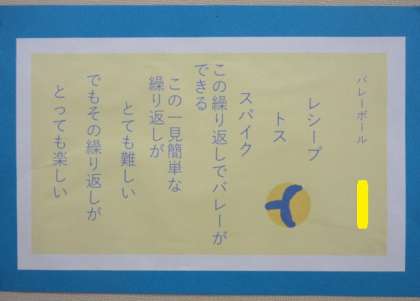 バレーボール
レシーブ
トス
スパイク
この繰り返しでバレーが
できる
この一見簡単な
繰り返しが
とても難しい
でもその繰り返しが
とっても楽しい